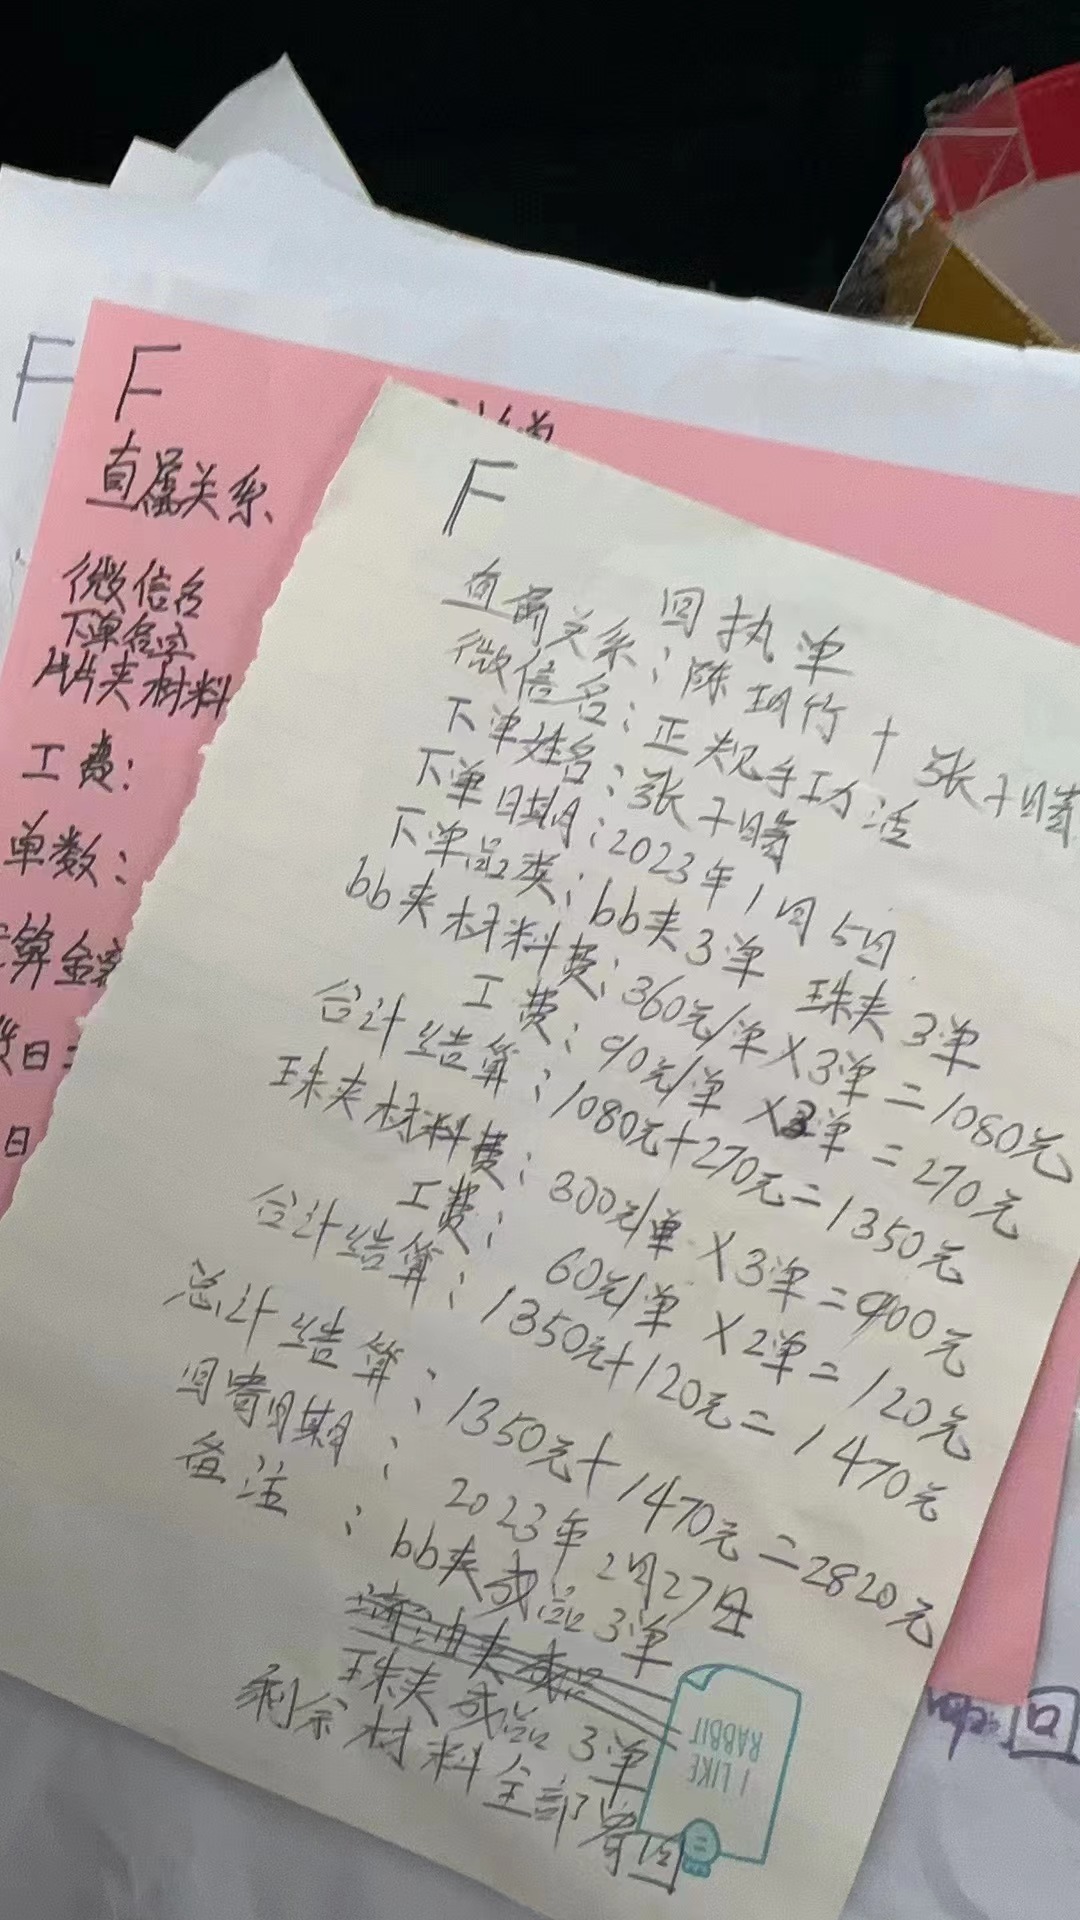 F
F
直属关系
微信名
下单名字
夹材料
工费：
单数：
算金
日
日
F
回执单
直属关系：陈玥竹+张子晴
微信名：正规手工活
下单姓名：张子晴
下单日期：2023年1月5日
下单品类：bb夹3单 珠夹3单
bb夹材料费：360元/单×3单=1080元
工费：90元/单×3单=270元
合计结算：1080元+270元=1350元
珠夹材料费：300元/单×3单=900元
工费：60元/单×2单=120元
合计结算：1350元+120元=1470元
总计结算：1350元+1470元=2820元
回寄日期：2023年2月27日
备注：bb夹成品3单
珠夹成品3单
剩余材料全部寄回
I LIKE
RABBIT
回